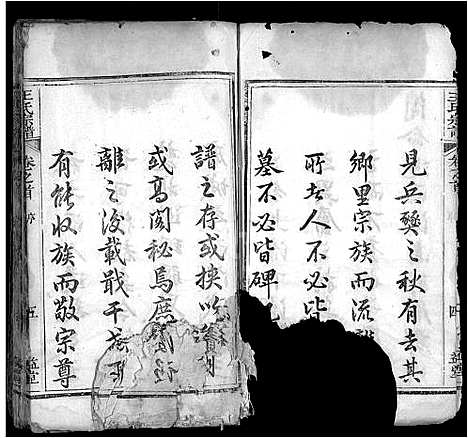 見兵燹之秋有去其
鄉里宗族而流
所去人不必皆
墓不必皆碑
譜之存或挾以
或高閣秘焉庶
離之後載戢干戈
有能收族而敬宗尊
王氏宗譜
卷之首
五
王氏宗譜
卷之首
四